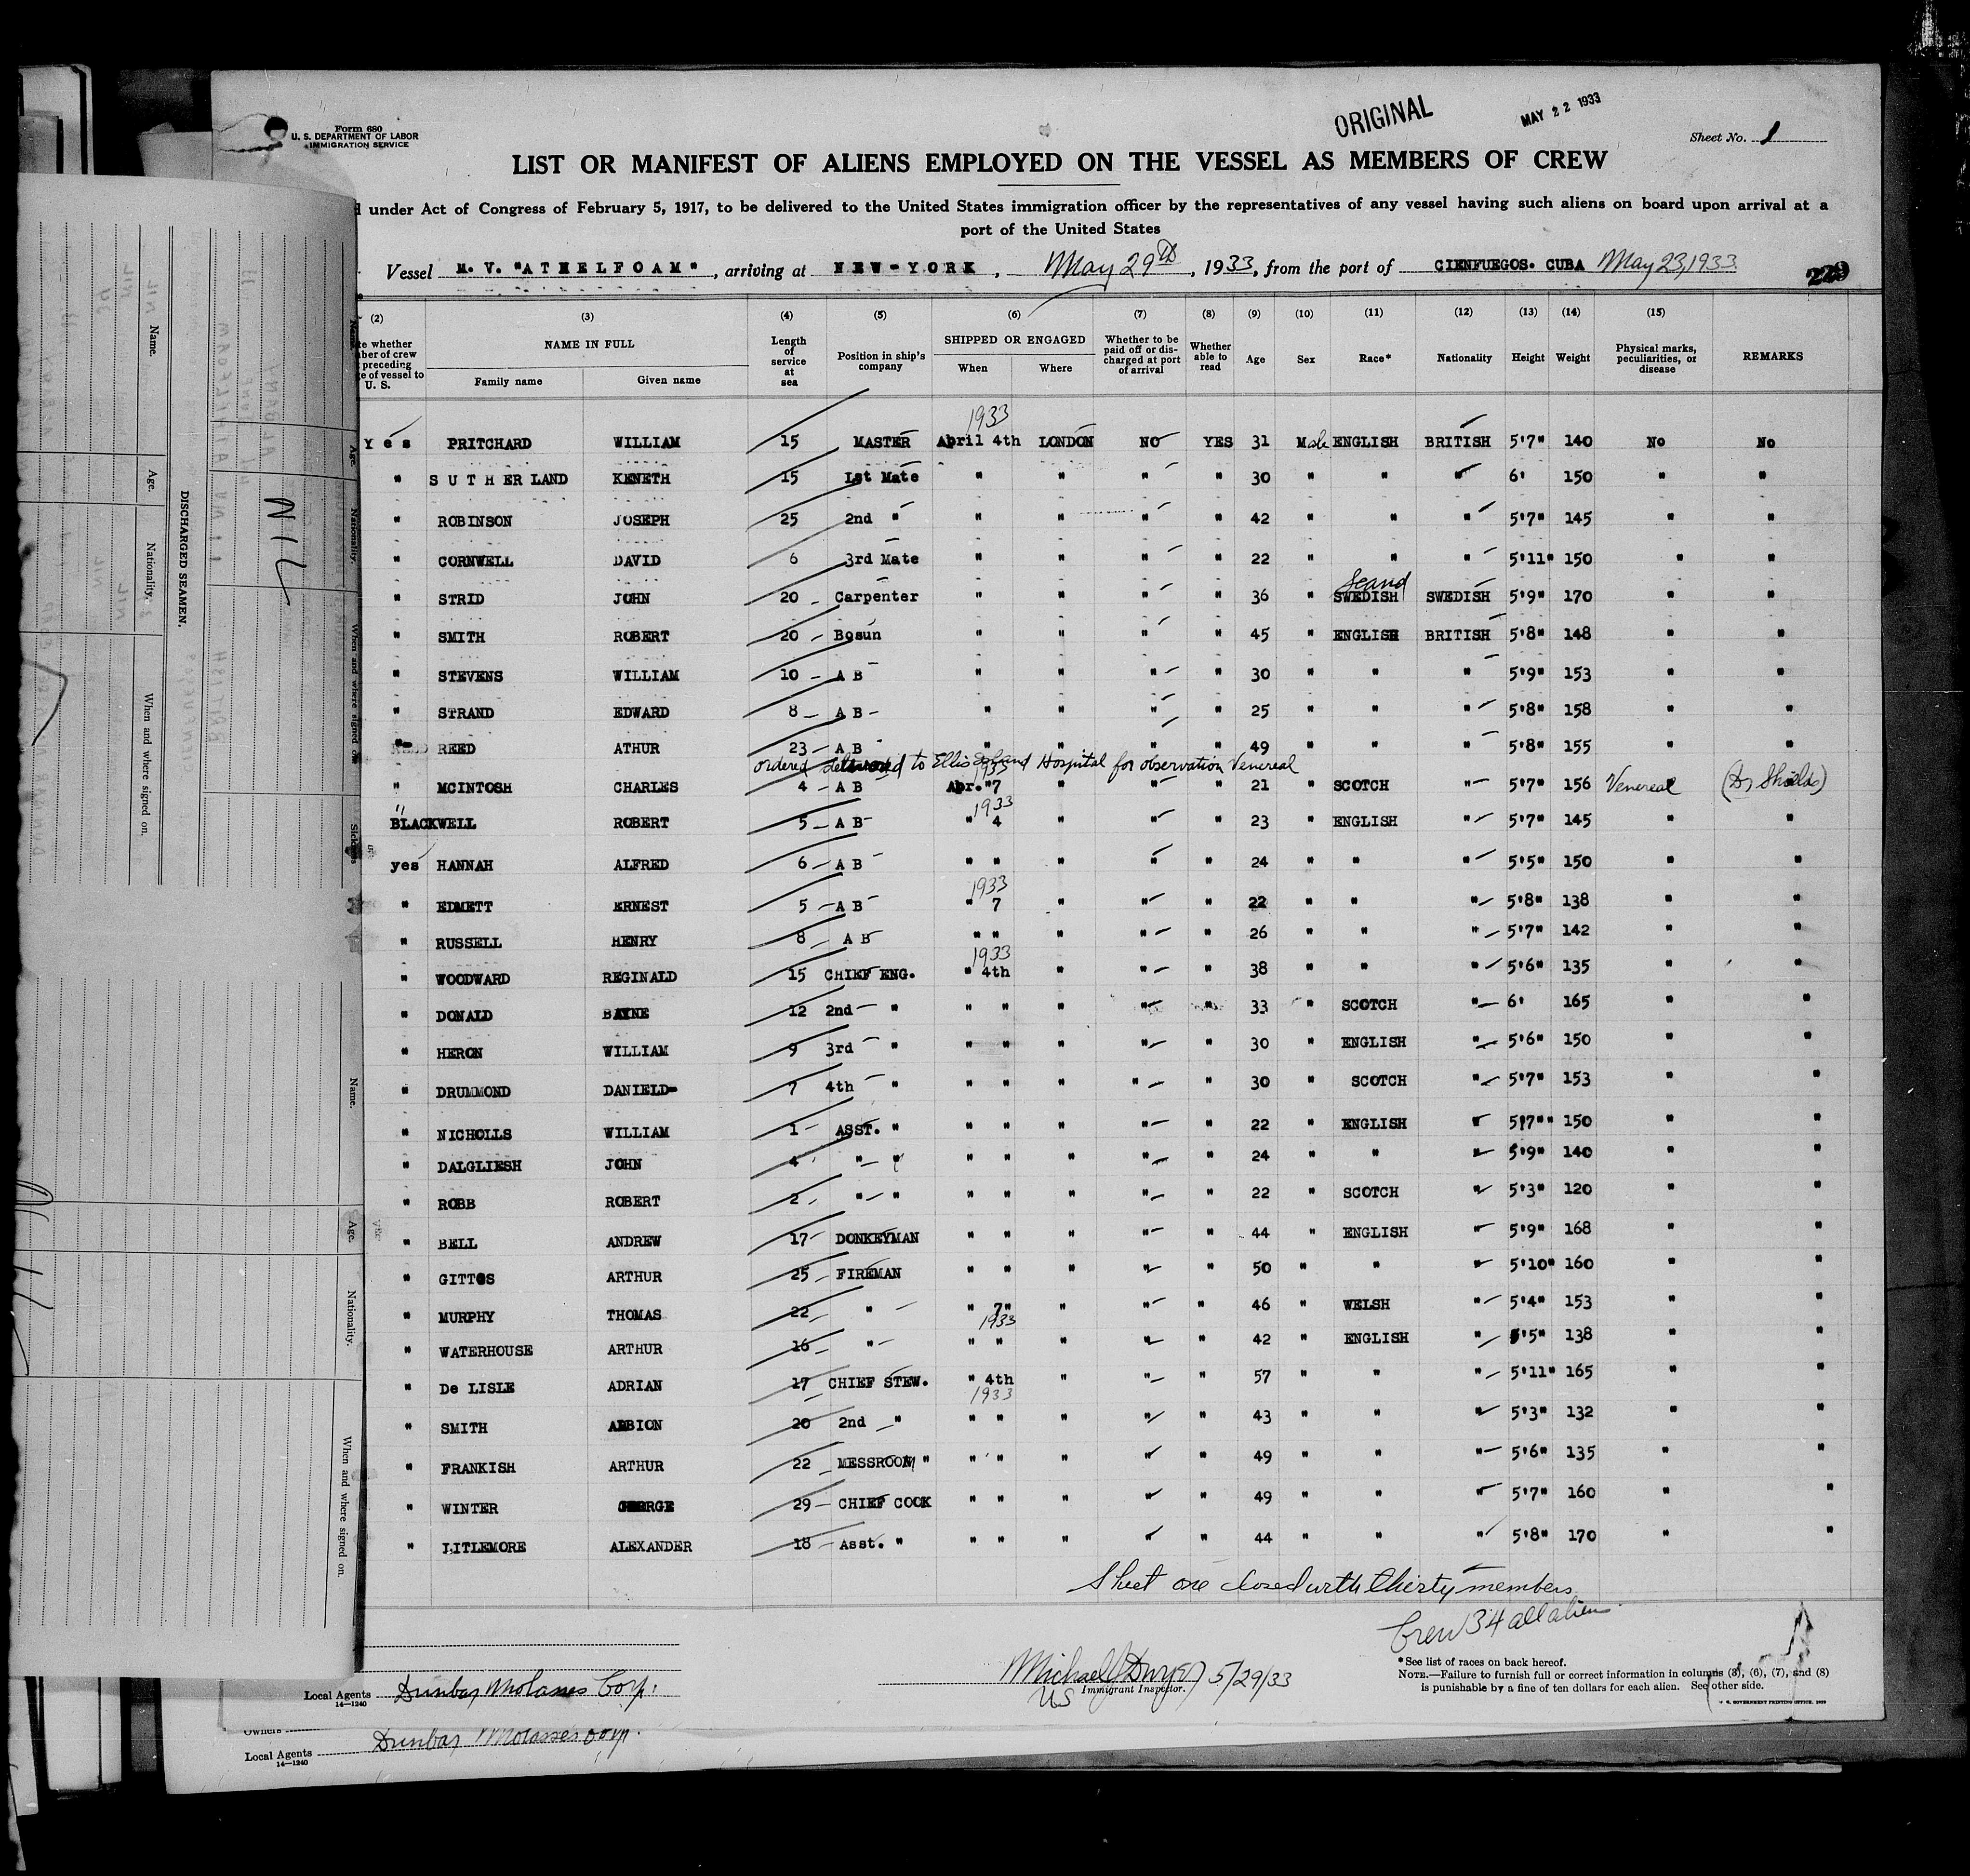 Form 680
U. S. DEPARTMENT OF LABOR
IMMIGRATION SERVICE
ORIGINAL
MAY 22 1933
Sheet No. 1
LIST OR MANIFEST OF ALIENS EMPLOYED ON THE VESSEL AS MEMBERS OF CREW
under Act of Congress of February 5, 1917, to be delivered to the United States immigration officer by the representatives of any vessel having such aliens on board upon arrival at a
port of the United States
Vessel M. V. "ATHELFOAM", arriving at NEW-YORK, May 29th, 1933, from the port of CIENFUEGOS. CUBA May 23, 1933
229
(2) (3) (4) (5) (6) (7) (8) (9) (10) (11) (12) (13) (14) (15)
whether
of crew
preceding
of vessel to
U. S.
NAME IN FULL
Family name Given name
Length of service at sea
Position in ship's company
SHIPPED OR ENGAGED
When Where
Whether to be paid off or discharged at port of arrival
Whether able to read
Age Sex Race* Nationality Height Weight
Physical marks, peculiarities, or disease
REMARKS
1933
Yes PRITCHARD WILLIAM 15 MASTER April 4th LONDON NO YES 31 Male ENGLISH BRITISH 5'7" 140 No No
" SUTHERLAND KENETH 15 1st Mate " " " " 30 " " " 6' 150 " "
" ROBINSON JOSEPH 25 2nd " " " " " 42 " " " 5'7" 145 " "
" CORNWELL DAVID 6 3rd Mate " " " " 22 " " " 5'11" 150 " "
Scand
" STRID JOHN 20 Carpenter " " " " 36 " SWEDISH SWEDISH 5'9" 170 " "
" SMITH ROBERT 20 Bosun " " " " 45 " ENGLISH BRITISH 5'8" 148 " "
" STEVENS WILLIAM 10 A B " " " " 30 " " " 5'9" 153 " "
" STRAND EDWARD 8 A B " " " " 25 " " " 5'8" 158 " "
" REED ATHUR 23 A B " " " " 49 " " " 5'8" 155 " "
ordered to Ellis Island Hospital for observation Venereal
1933
" MCINTOSH CHARLES 4 A B Apr. 7 " " " 21 " SCOTCH " 5'7" 156 Venereal (Dr Shields)
1933
" BLACKWELL ROBERT 5 A B " 4 " " " 23 " ENGLISH " 5'7" 145 " "
yes HANNAH ALFRED 6 A B " " " " " 24 " " " 5'5" 150 " "
1933
" EDMETT ERNEST 5 A B " 7 " " " 22 " " " 5'8" 138 " "
" RUSSELL HENRY 8 A B " " " " " 26 " " " 5'7" 142 " "
1933
" WOODWARD REGINALD 15 CHIEF ENG. " 4th " " " 38 " " " 5'6" 135 " "
" DONALD BAYNE 12 2nd " " " " " " 33 " SCOTCH " 6' 165 " "
" HERON WILLIAM 9 3rd " " " " " " 30 " ENGLISH " 5'6" 150 " "
" DRUMMOND DANIEL 7 4th " " " " " " 30 " SCOTCH " 5'7" 153 " "
" NICHOLLS WILLIAM 1 ASST. " " " " " " 22 " ENGLISH " 5'7" 150 " "
" DALGLIESH JOHN 4 " " " " " " " 24 " " " 5'9" 140 " "
" ROBB ROBERT 2 " " " " " " " 22 " SCOTCH " 5'3" 120 " "
" BELL ANDREW 17 DONKEYMAN " " " " " 44 " ENGLISH " 5'9" 168 " "
" GITTOS ARTHUR 25 FIREMAN " " " " " 50 " " " 5'10" 160 " "
" MURPHY THOMAS 22 " " 7" " " " 46 " WELSH " 5'4" 153 " "
1933
" WATERHOUSE ARTHUR 16 " " " " " " 42 " ENGLISH " 5'5" 138 " "
" De LISLE ADRIAN 17 CHIEF STEW. " 4th " " " 57 " " " 5'11" 165 " "
1933
" SMITH ALBION 20 2nd " " " " " " 43 " " " 5'3" 132 " "
" FRANKISH ARTHUR 22 MESSROOM " " " " " " 49 " " " 5'6" 135 " "
" WINTER GEORGE 29 CHIEF COOK " " " " " 49 " " " 5'7" 160 " "
" LITLEMORE ALEXANDER 18 Asst. " " " " " " 44 " " " 5'8" 170 " "
Sheet one closed with thirty members
Crew 34 all alien
Michael J Dwyer 5/29/33
US Immigrant Inspector.
*See list of races on back hereof.
NOTE.—Failure to furnish full or correct information in columns (3), (6), (7), and (8)
is punishable by a fine of ten dollars for each alien. See other side.
U. S. GOVERNMENT PRINTING OFFICE.
Local Agents Dunbar Molasses Corp.
14—1240
Owners
Local Agents Dunbar Molasses Corp.
14—1240
DISCHARGED SEAMEN.
Name. Age. Nationality. When and where signed on.
NIL
Name. Age. Nationality. When and where signed on.